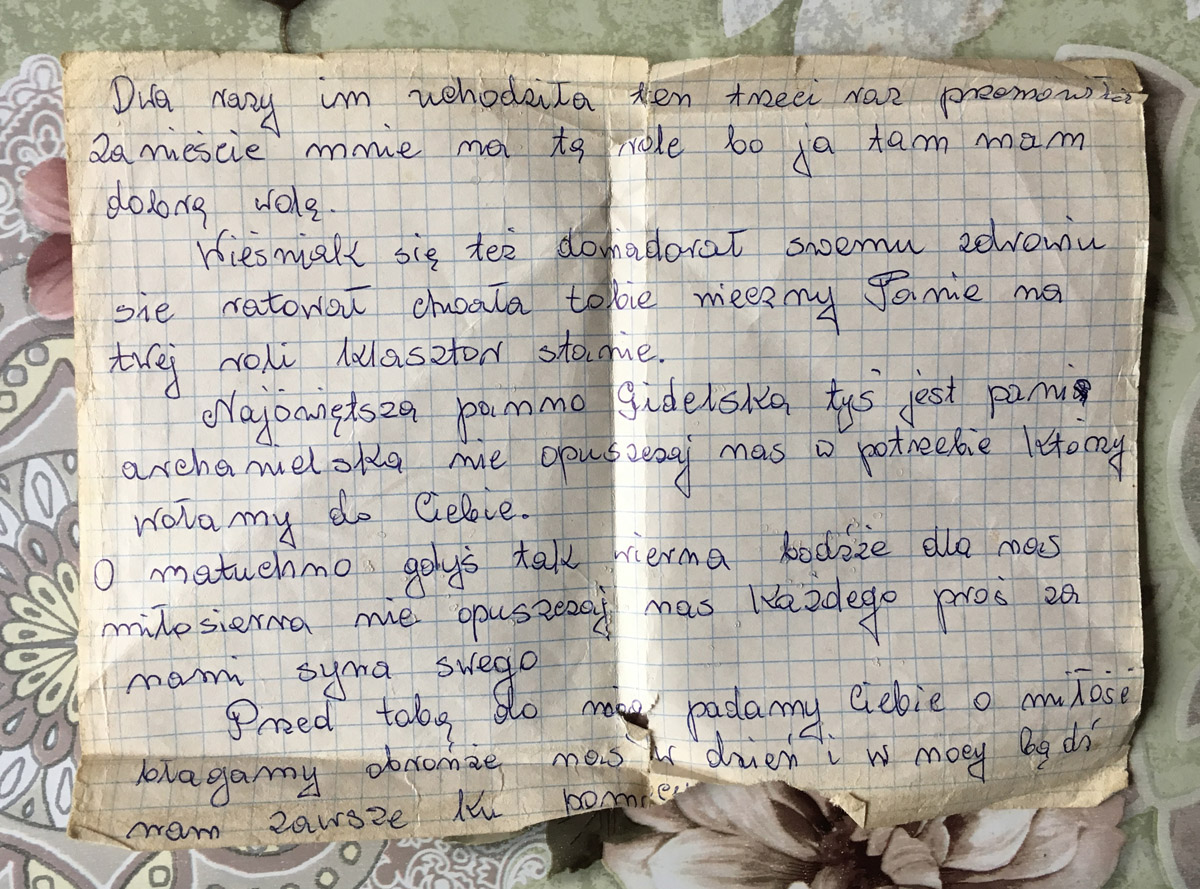 Dwa razy im uchodziła ten trzeci raz przemówiła
Zanieście mnie na tą role bo ja tam mam
dobrą wolą.
Wieśniak się też dowiadował swemu zdrowiu
sie ratował chwała tobie wieczny Panie na
twej roli klasztor stanie.
Najświętszą panno Gidelską tyś jest panią
archanielską nie opuszczaj nas w potrzebie którzy
wołamy do Ciebie.
O matuchno gdyś tak wierna bodźże dla nas
miłosierna nie opuszczaj nas każdego proś za
nami syna swego
Przed tobą do nóg padamy Ciebie o miłość
błagamy obrońże nas w dzień i w nocy bądź
nam zawsze ku pomocy